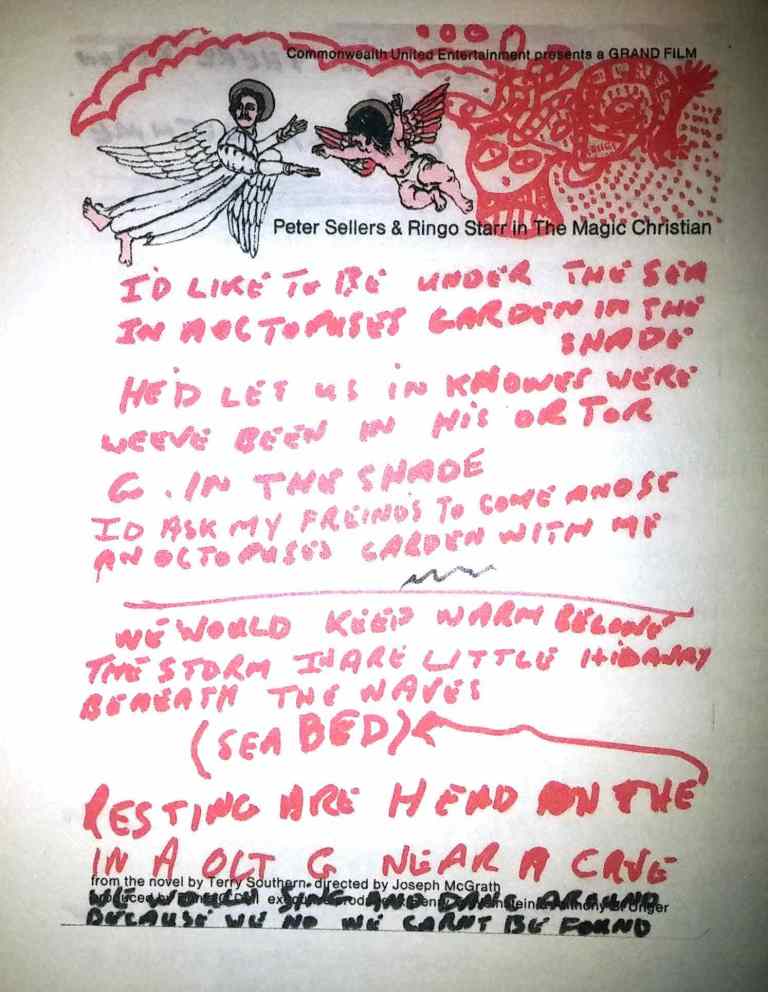 Commonwealth United Entertainment presents a GRAND FILM
Peter Sellers & Ringo Starr in The Magic Christian
I'D LIKE TO BE UNDER THE SEA
IN A OCTOPUSES GARDEN IN THE
SHADE
HE'D LET US IN KNOWES WERE
WEEVE BEEN IN HIS OR TOR
G. IN THE SHADE
ID ASK MY FREINDS TO COME ANDSE
AN OCTOPUSES GARDEN WITH ME
WE WOULD KEEP WARM BELOWE
THE STORM IN ARE LITTLE HIDAWAY
BENEATH THE WAVES
(SEA BED)
RESTING ARE HEAD ON THE
IN A OCT G NEAR A CAVE
from the novel by Terry Southern. directed by Joseph McGrath
WE WOULD SING AND DANC AROUND
produced by executive produce
BECAUSE WE NO WE CARNT BE FOUND